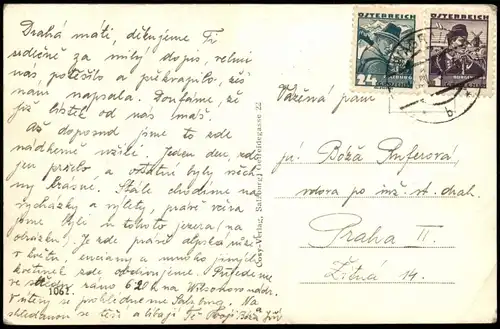 Drahá máti, děkujeme Ti
srdečně za milý dopis, velmi
nás potěšilo a překvapilo, žes
nám napsala. Doufáme, že
již lístek od nás máš.
Až doposud jsme to zde
nádherně užili. Jeden den zde
jen pršelo a ostatní byly všechny
krásné. Stále chodíme na
vycházky a výlety, právě včera
jsme byli u tohoto jezera (na
obrázku). Je zde právě alpská růže
v květu, enciány a mnoho jiných
kvetinek zde obdivujeme. Přijedeme
ve středu ráno 6.20 h na Wilsonovo nádr.
V úterý se prohlédneme Salzburg. Na
shledanou se těší a líbají Tě
1062
Cosy-Verlag, Salzburg, Getreidegasse 22
ÖSTERREICH
24
ÖSTERREICH
1
b
Vážená paní
pí. Boža
vdova po inž. st. drah.
Praha II.
Žitná 14.